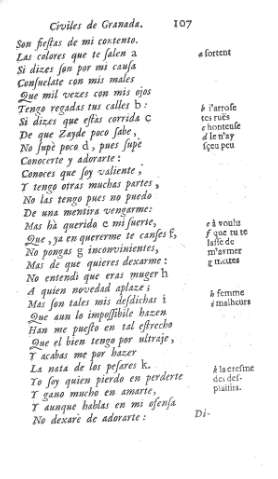 Civiles de Granada. 107
Son fiestas de mi contento.
Las colores que te salen a
Si dizes son por mi causa
Consuelate con mis males
Que mil vezes con mis ojos
Tengo regadas tus calles b:
Si dizes que estàs corrida c
De que Zayde poco sabe,
No supè poco d, pues supè
Conocerte y adorarte:
Conoces que soy valiente,
Y tengo otras muchas partes,
No las tengo pues no puedo
De una mentira vengarme:
Mas hà querido e mi suerte,
Que, ya en quererme te canses f,
No pongas g inconvinientes,
Mas de que quieres dexarme:
No entendi que eras muger h
A quien novedad aplaze;
Mas son tales mis desdichas i
Que aun lo impossibile hazen
Han me puesto en tal estrecho
Que el bien tengo por ultraje,
Y acabas me por hazer
La nata de los pesares k.
Yo soy quien pierdo en perderte
Y gano mucho en amarte,
Y aunque hablas en mi ofensa
No dexarè de adorarte:
Di-
a sortent
b i'arrose
tes ruës
c hontense
d ie n'ay
sçeu peu
e à voulu
f que tu te
lasse de
m'aymer
g mettes
h femme
i malheurs
k la cresme
des des-
plaisirs.